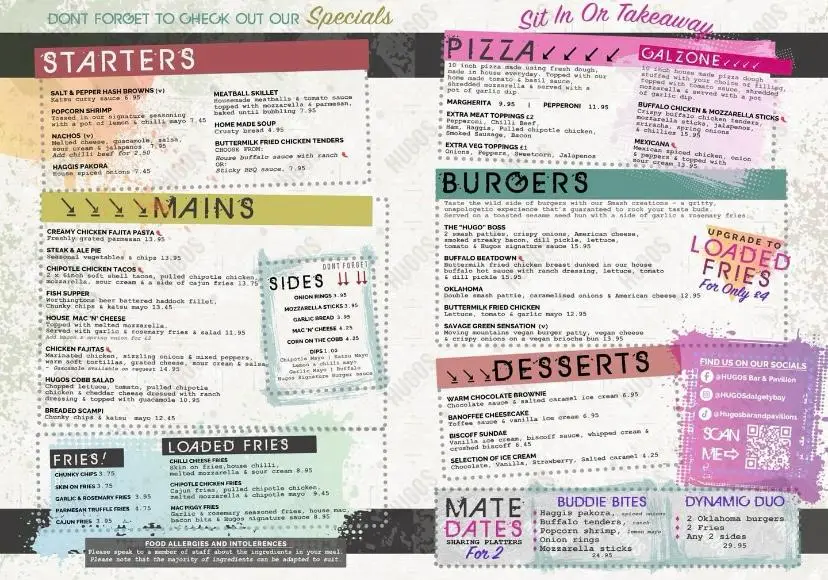 DONT FORGET TO CHECK OUT OUR Specials
STARTERS
SALT & PEPPER HASH BROWNS (v)
Katsu curry sauce 6.95
POPCORN SHRIMP
Tossed in our signature seasoning
with a pot of lemon & chilli mayo 7.45
NACHOS (v)
Melted cheese, guacamole, salsa,
sour cream & jalapenos. 7.95
Add chilli beef for 2.50
HAGGIS PAKORA
House spiced onions 7.45
MEATBALL SKILLET
Housemade meatballs & tomato sauce
topped with mozzarella & parmesan,
baked until bubbling 7.95
HOME MADE SOUP
Crusty bread 4.95
BUTTERMILK FRIED CHICKEN TENDERS
CHOOSE FROM:
House buffalo sauce with ranch
OR:
Sticky BBQ sauce. 7.95
MAINS
CREAMY CHICKEN FAJITA PASTA
Freshly grated parmesan 13.95
STEAK & ALE PIE
Seasonal vegetables & chips 13.95
CHIPOTLE CHICKEN TACOS
2 x 6inch soft shell tacos, pulled chipotle chicken,
mozzarella, sour cream & a side of cajun fries 13.75
FISH SUPPER
Worthingtons beer battered haddock fillet,
Chunky chips & katsu mayo 13.45
HOUSE MAC 'N' CHEESE
Topped with melted mozzarella.
Served with garlic & rosemary fries & salad 11.95
Add bacon & spring onion for £2
CHICKEN FAJITAS
Marinated chicken, sizzling onions & mixed peppers,
warm soft tortillas, grated cheese, sour cream & salsa
Guacamole available on request 14.95
HUGOS COBB SALAD
Chopped lettuce, tomato, pulled chipotle
chicken & cheddar cheese dressed with ranch
dressing & topped with guacamole 10.95
BREADED SCAMPI
Chunky chips & katsu mayo 12.45
DONT FORGET
SIDES
ONION RINGS 3.95
MOZZARELLA STICKS 3.95
GARLIC BREAD 3.95
MAC 'N' CHEESE 4.25
CORN ON THE COBB 4.25
DIPS 1.00
Chipotle Mayo | Katsu Mayo
Lemon & chilli mayo
Garlic Mayo | Buffalo
Hugos Signature Burger sauce
FRIES!
CHUNKY CHIPS 3.75
SKIN ON FRIES 3.75
GARLIC & ROSEMARY FRIES 3.95
PARMESAN TRUFFLE FRIES 4.75
CAJUN FRIES 3.95
LOADED FRIES
CHILLI CHEESE FRIES
Skin on fries, house chilli,
melted mozzarella & sour cream 8.95
CHIPOTLE CHICKEN FRIES
Cajun fries, pulled chipotle chicken,
melted mozzarella & chipotle mayo 9.45
MAC PIGGY FRIES
Garlic & rosemary seasoned fries, house mac,
bacon bites & Hugos signature sauce 8.95
FOOD ALLERGIES AND INTOLERENCES
Please speak to a member of staff about the ingredients in your meal.
Please note that the majority of ingredients can be adapted to suit.
Sit In Or Takeaway
PIZZA
10 inch pizza made using fresh dough,
made in house everyday. Topped with our
home made tomato & basil sauce,
shredded mozzarella & served with a
pot of garlic dip
MARGHERITA 9.95 | PEPPERONI 11.95
EXTRA MEAT TOPPINGS £2
Pepperoni, Chilli Beef,
Ham, Haggis, Pulled chipotle chicken,
Smoked Sausage, Bacon
EXTRA VEG TOPPINGS £1
Onions, Peppers, Sweetcorn, Jalapenos
GALZONE
10 inch house made pizza dough
stuffed with your choice of filling,
topped with tomato sauce, shredded
mozzarella & served with a pot
of garlic dip.
BUFFALO CHICKEN & MOZZARELLA STICKS
Crispy buffalo chicken tenders,
mozzarella sticks, jalapenos,
sriracha, spring onions
& chillies 15.95
MEXICANA
Mexican spiced chicken, onion
& peppers & topped with
sour cream 13.95
BURGERS
Taste the wild side of burgers with our Smash creations - a gritty,
unapologetic experience that's guaranteed to rock your taste buds.
Served on a toasted sesame seed bun with a side of garlic & rosemary fries.
THE "HUGO" BOSS
2 smash patties, crispy onions, American cheese,
smoked streaky bacon, dill pickle, lettuce,
tomato & Hugos signature sauce 15.95
BUFFALO BEATDOWN
Buttermilk fried chicken breast dunked in our house
buffalo hot sauce with ranch dressing, lettuce, tomato
& dill pickle 15.95
OKLAHOMA
Double smash pattie, caramelised onions & American cheese 12.95
BUTTERMILK FRIED CHICKEN
Lettuce, tomato & garlic mayo 12.95
SAVAGE GREEN SENSATION (v)
Moving mountains vegan burger patty, vegan cheese
& crispy onions on a vegan brioche bun 13.95
UPGRADE TO
LOADED
FRIES
For Only £4
DESSERTS
WARM CHOCOLATE BROWNIE
Chocolate sauce & salted caramel ice cream 6.95
BANOFFEE CHEESECAKE
Toffee sauce & vanilla ice cream 6.95
BISCOFF SUNDAE
Vanilla ice cream, biscoff sauce, whipped cream &
crushed biscoff 8.45
SELECTION OF ICE CREAM
Chocolate, Vanilla, Strawberry, Salted caramel 4.25
FIND US ON OUR SOCIALS
@HUGOS Bar & Pavilion
@HUGOSdalgetybay
@Hugosbarandpavilions
SCAN
ME
MATE
DATES
SHARING PLATTERS
For 2
BUDDIE BITES
Haggis pakora, spiced onions
Buffalo tenders, ranch
Popcorn shrimp, lemon mayo
Onion rings
Mozzarella sticks
24.95
DYNAMIC DUO
2 Oklahoma burgers
2 Fries
Any 2 sides
29.95